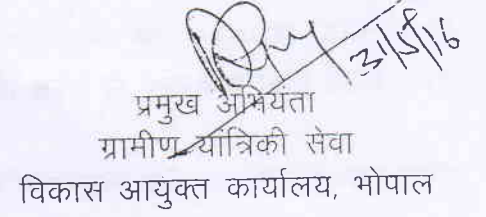 31/5/16
प्रमुख अभियंता
ग्रामीण यांत्रिकी सेवा
विकास आयुक्त कार्यालय, भोपाल